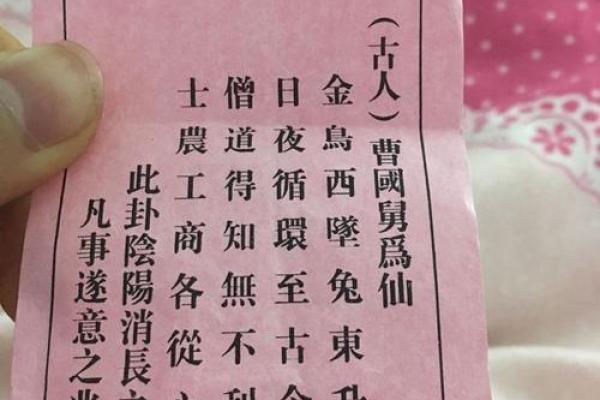 （古人）曹國舅爲仙
金鳥西墜兔東升
日夜循環至古今
僧道得知無不利
士農工商各從
此卦陰陽消長
凡事遂意之兆